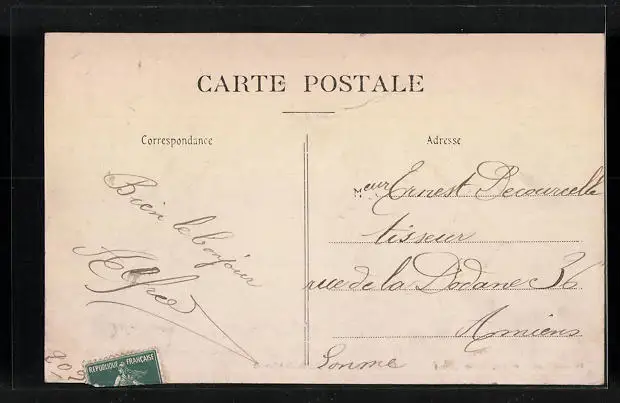 CARTE POSTALE
Correspondance
Adresse
Bien le bonjour
Meur Ernest Decourcelle
tisseur
rue de la Dodane 36
Amiens
Somme
REPUBLIQUE FRANÇAISE